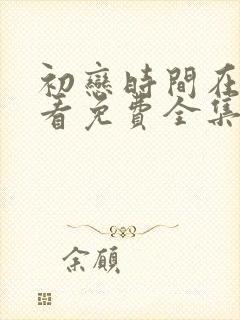 初戀時間在
看免費全集
余願